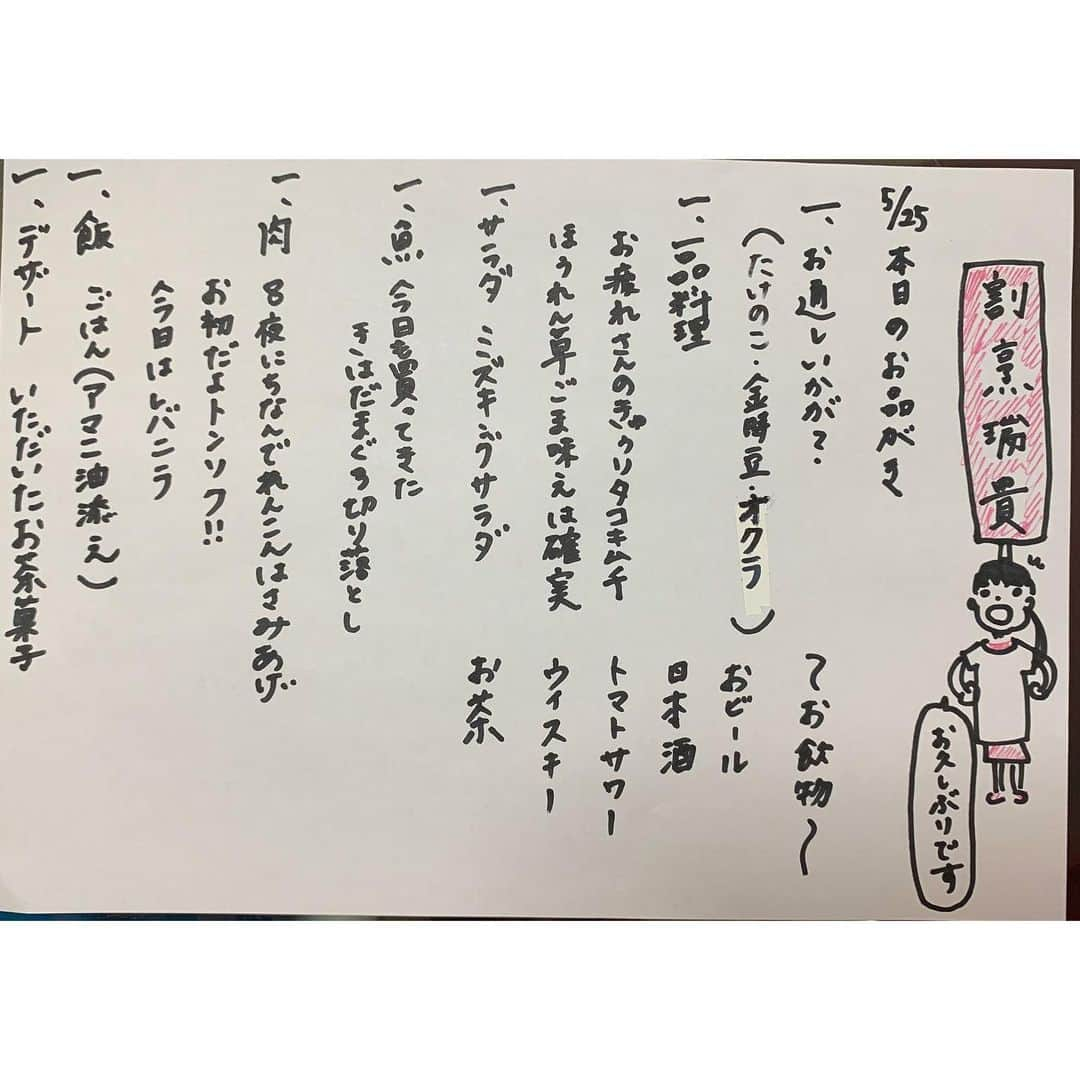 割烹瑞貴
お久しぶりです
5/25 本日のお品がき
一、お通しいかが?
(たけのこ・金時豆・オクラ)
一、一品料理
お疲れさんのぎゅうりタコキムチ
ほうれん草ごま味えは確実
一、サラダ ミズキングサラダ
一、魚 今日も買ってきた
きはだまぐろ切り落とし
一、肉 8夜にちなんでれんこんはさみあげ
お初だよトンソク!!
今日はレバニラ
一、飯 ごはん(アマニ油添え)
一、デザート いただいたお茶菓子
〜お飲物〜
おビール
日本酒
トマトサワー
ウイスキー
お茶